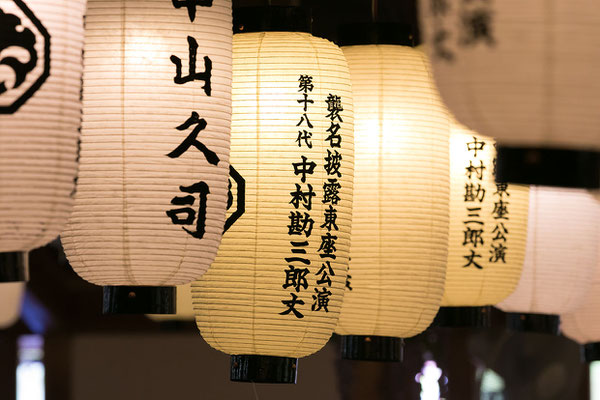 中山久司
襲名披露東座公演
第十八代 中村勘三郎丈
座公演
中村勘三郎丈